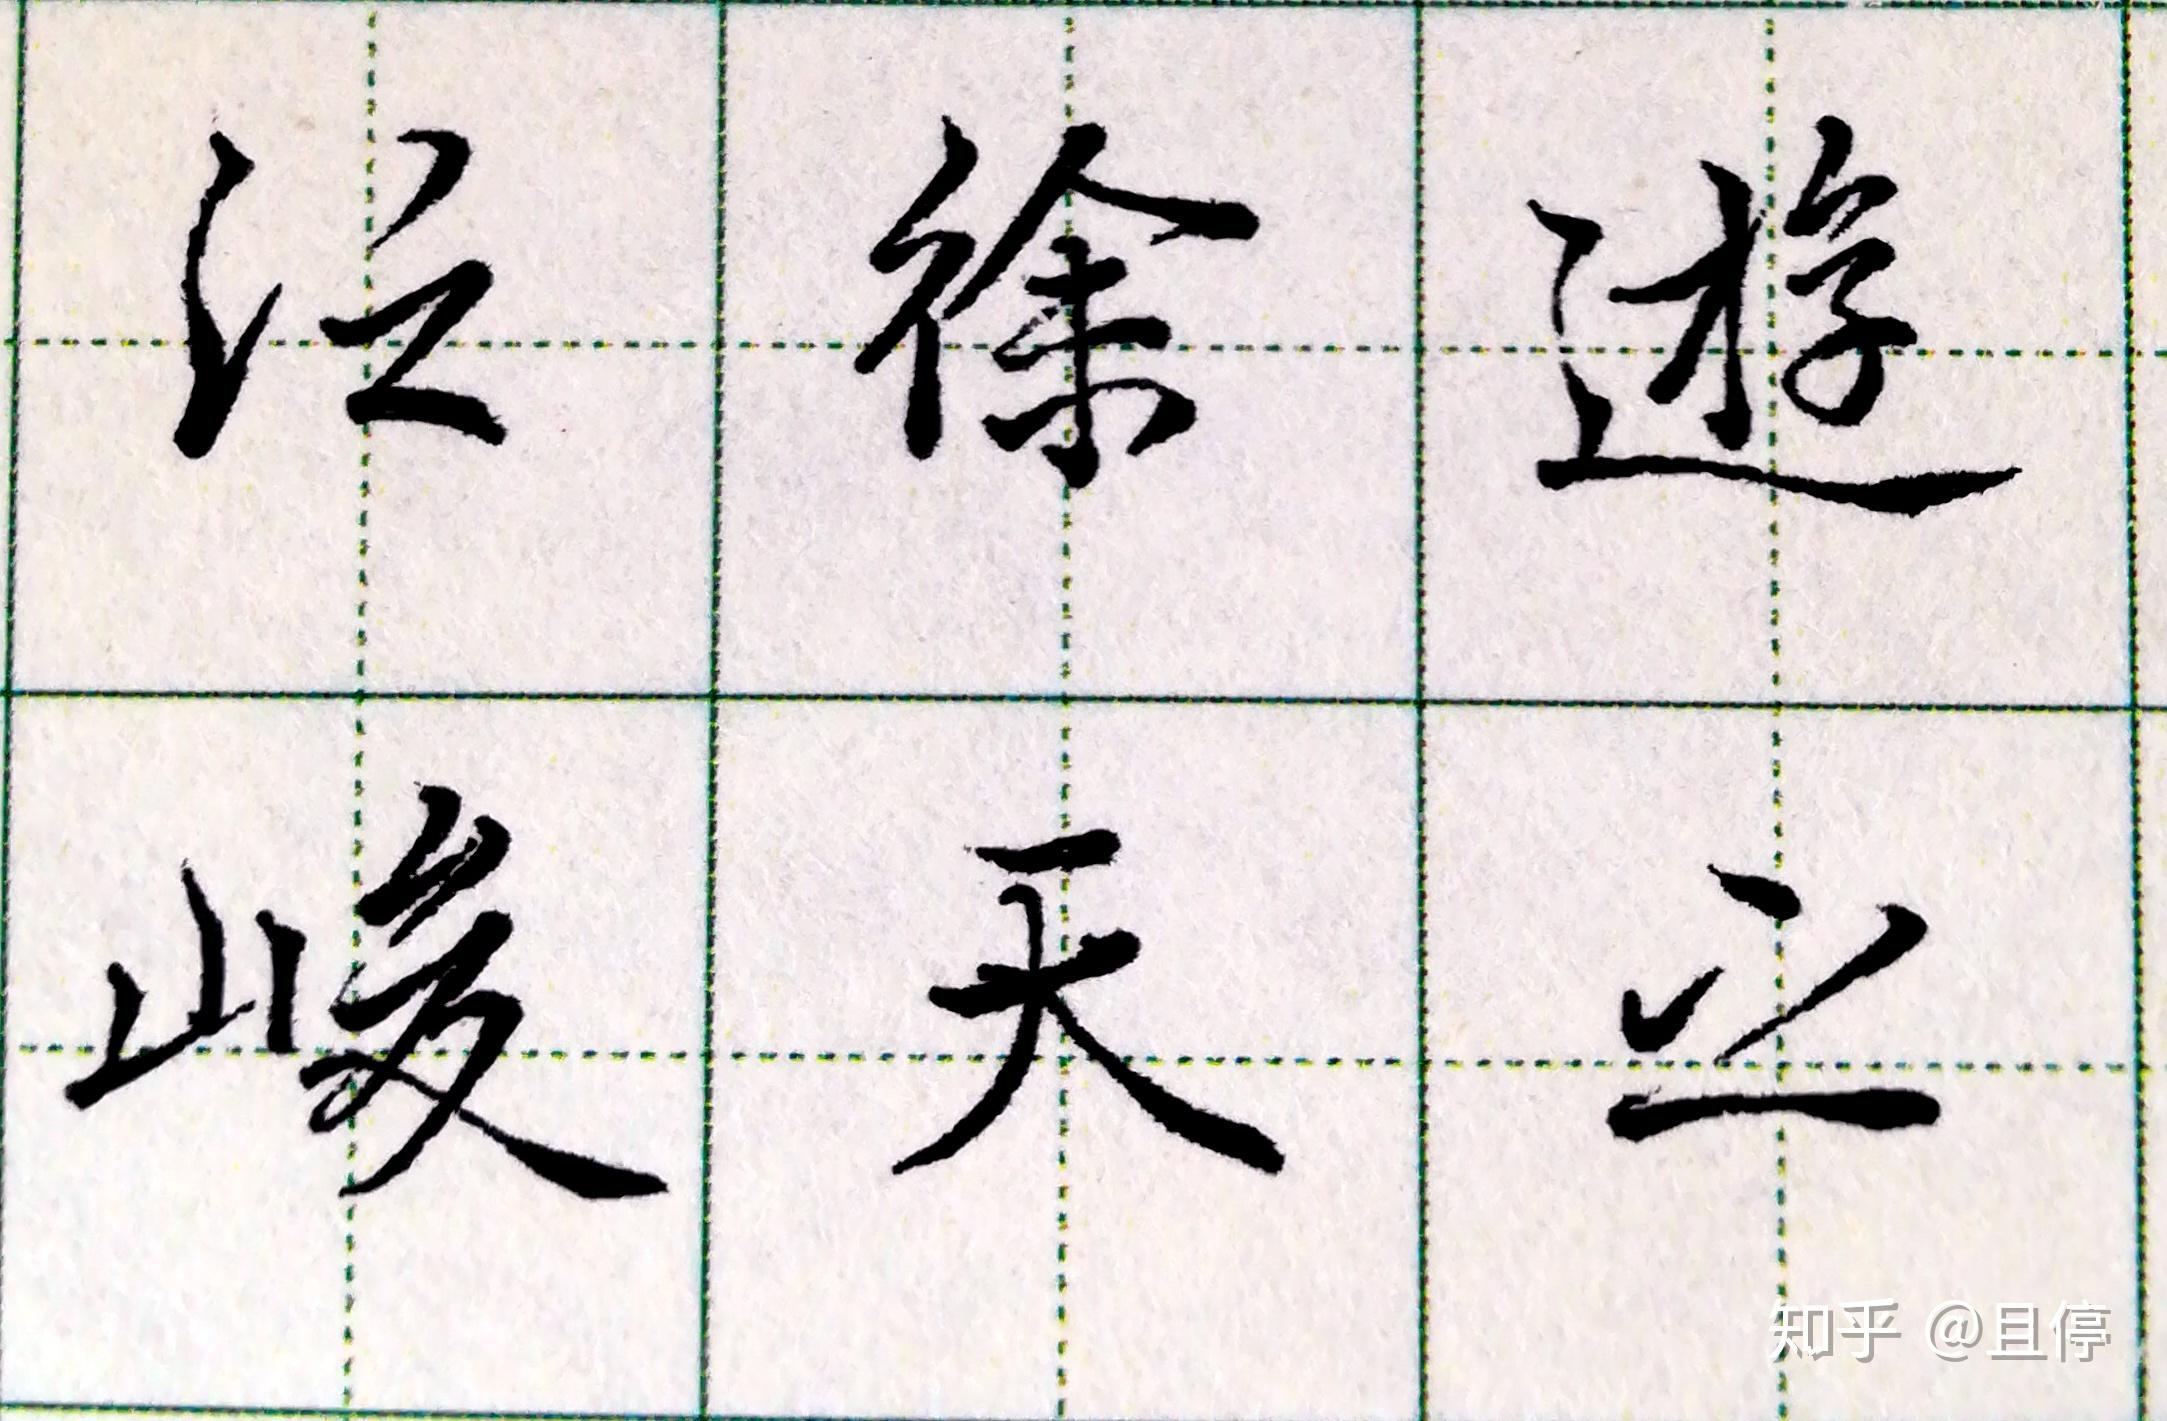 泛徐遊
峻天
知乎 @且停